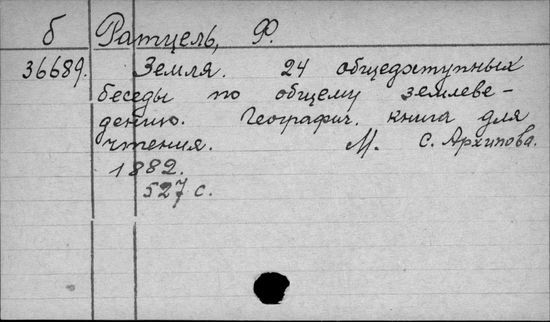 б Ратцель, Ф.
36689. Земля. 24 общедоступных
беседы по общему землеве-
дению. Географич. книга для
чтения. М. С. Архипова.
1882.
527 с.